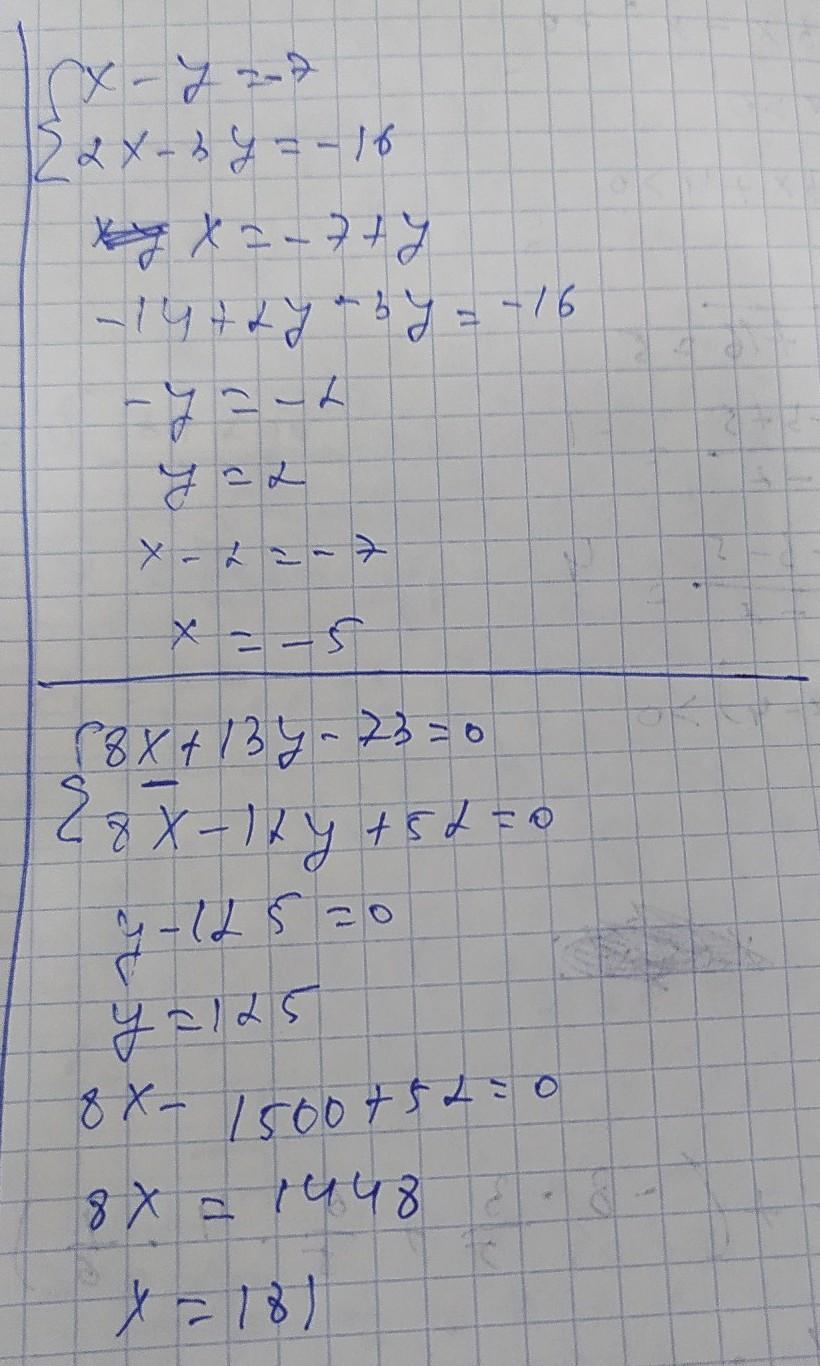 x - y = -7
2x - 3y = -16
x = -7 + y
-14 + 2y - 3y = -16
-y = -2
y = 2
x - 2 = -7
x = -5
8x + 13y - 73 = 0
8x - 12y + 52 = 0
y - 125 = 0
y = 125
8x - 1500 + 52 = 0
8x = 1448
x = 181